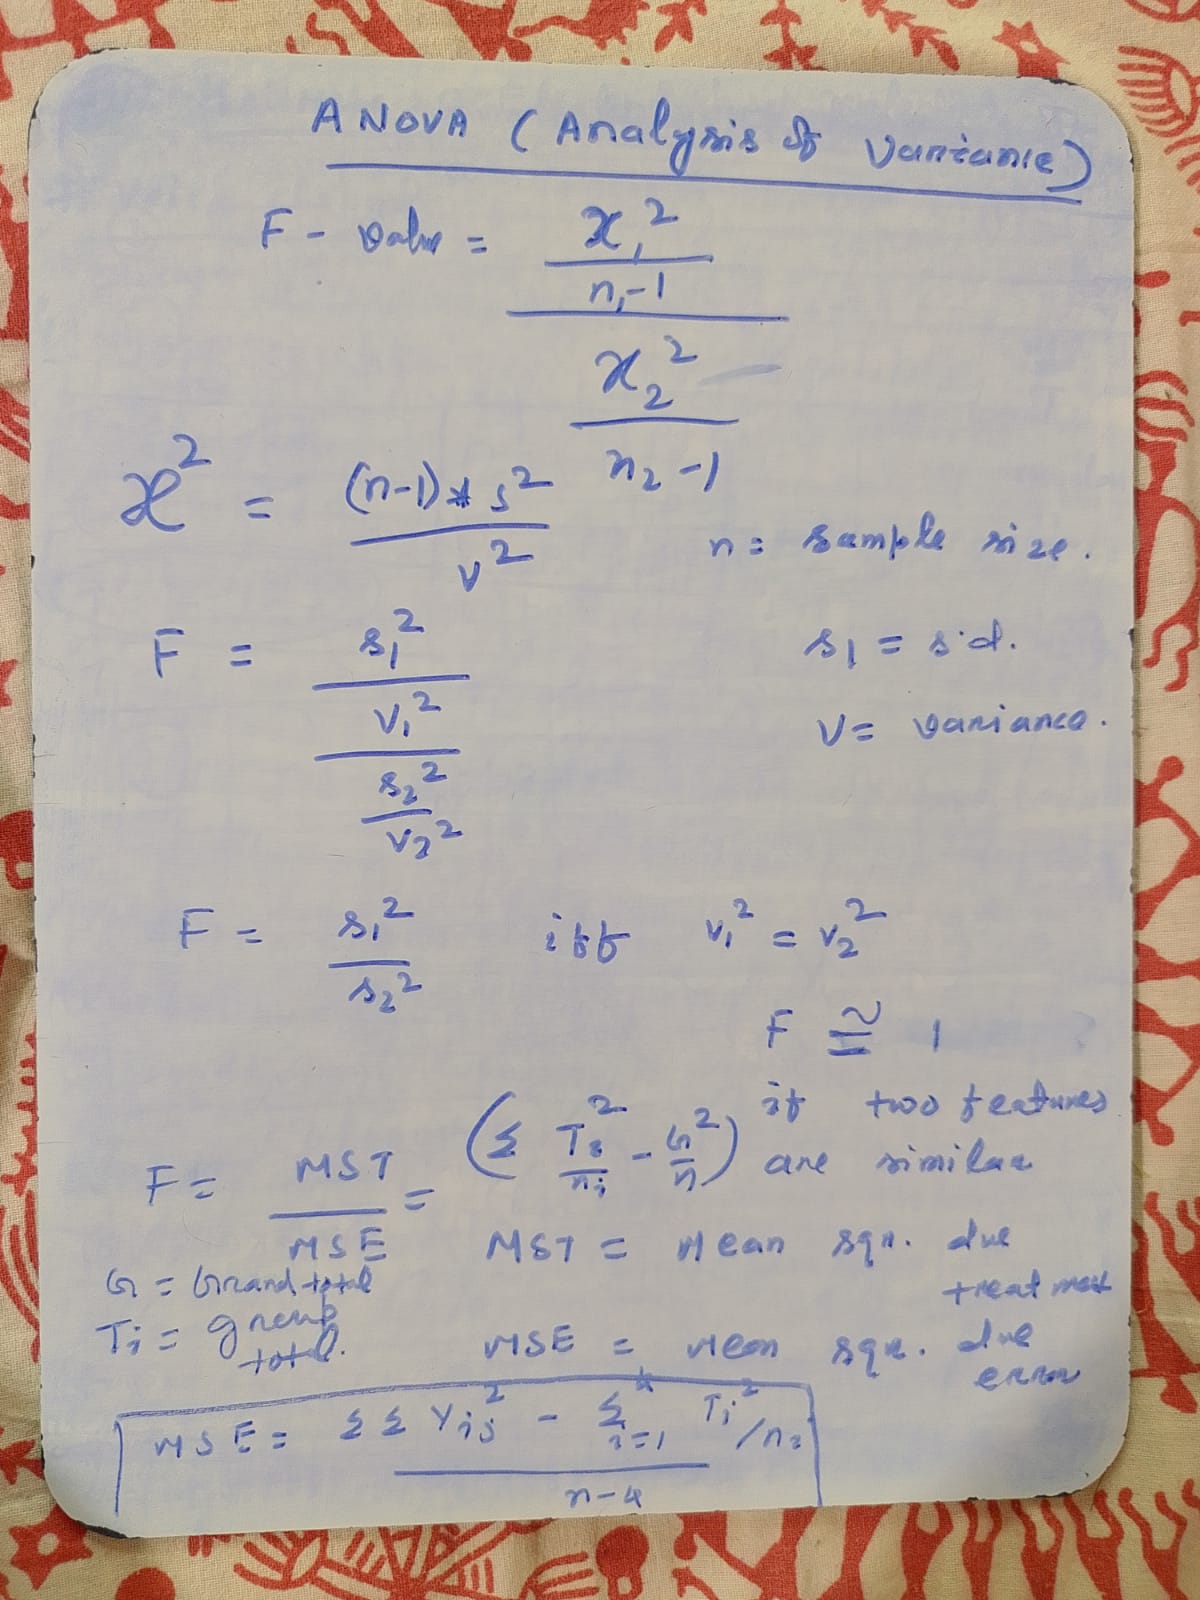 ANOVA (Analysis of Variance)
F - value = x₁² / n₁-1 / x₂² / n₂-1
x² = (n-1) * s² / v²
n = sample size.
F = s₁² / v₁² / s₂² / v₂²
s₁ = s.d.
v = variance.
F = s₁² / s₂² iff v₁² = v₂²
F ≅ 1
if two features
are similar
F = MST / MSE = (Σ Ti² / ni - G² / n)
MST = Mean sqr. due
treatment
G = Grand total
Ti = group
total.
MSE = Mean sqr. due
error
MSE = ΣΣ Yij² - Σ i=1 k Ti² / ni
n-k